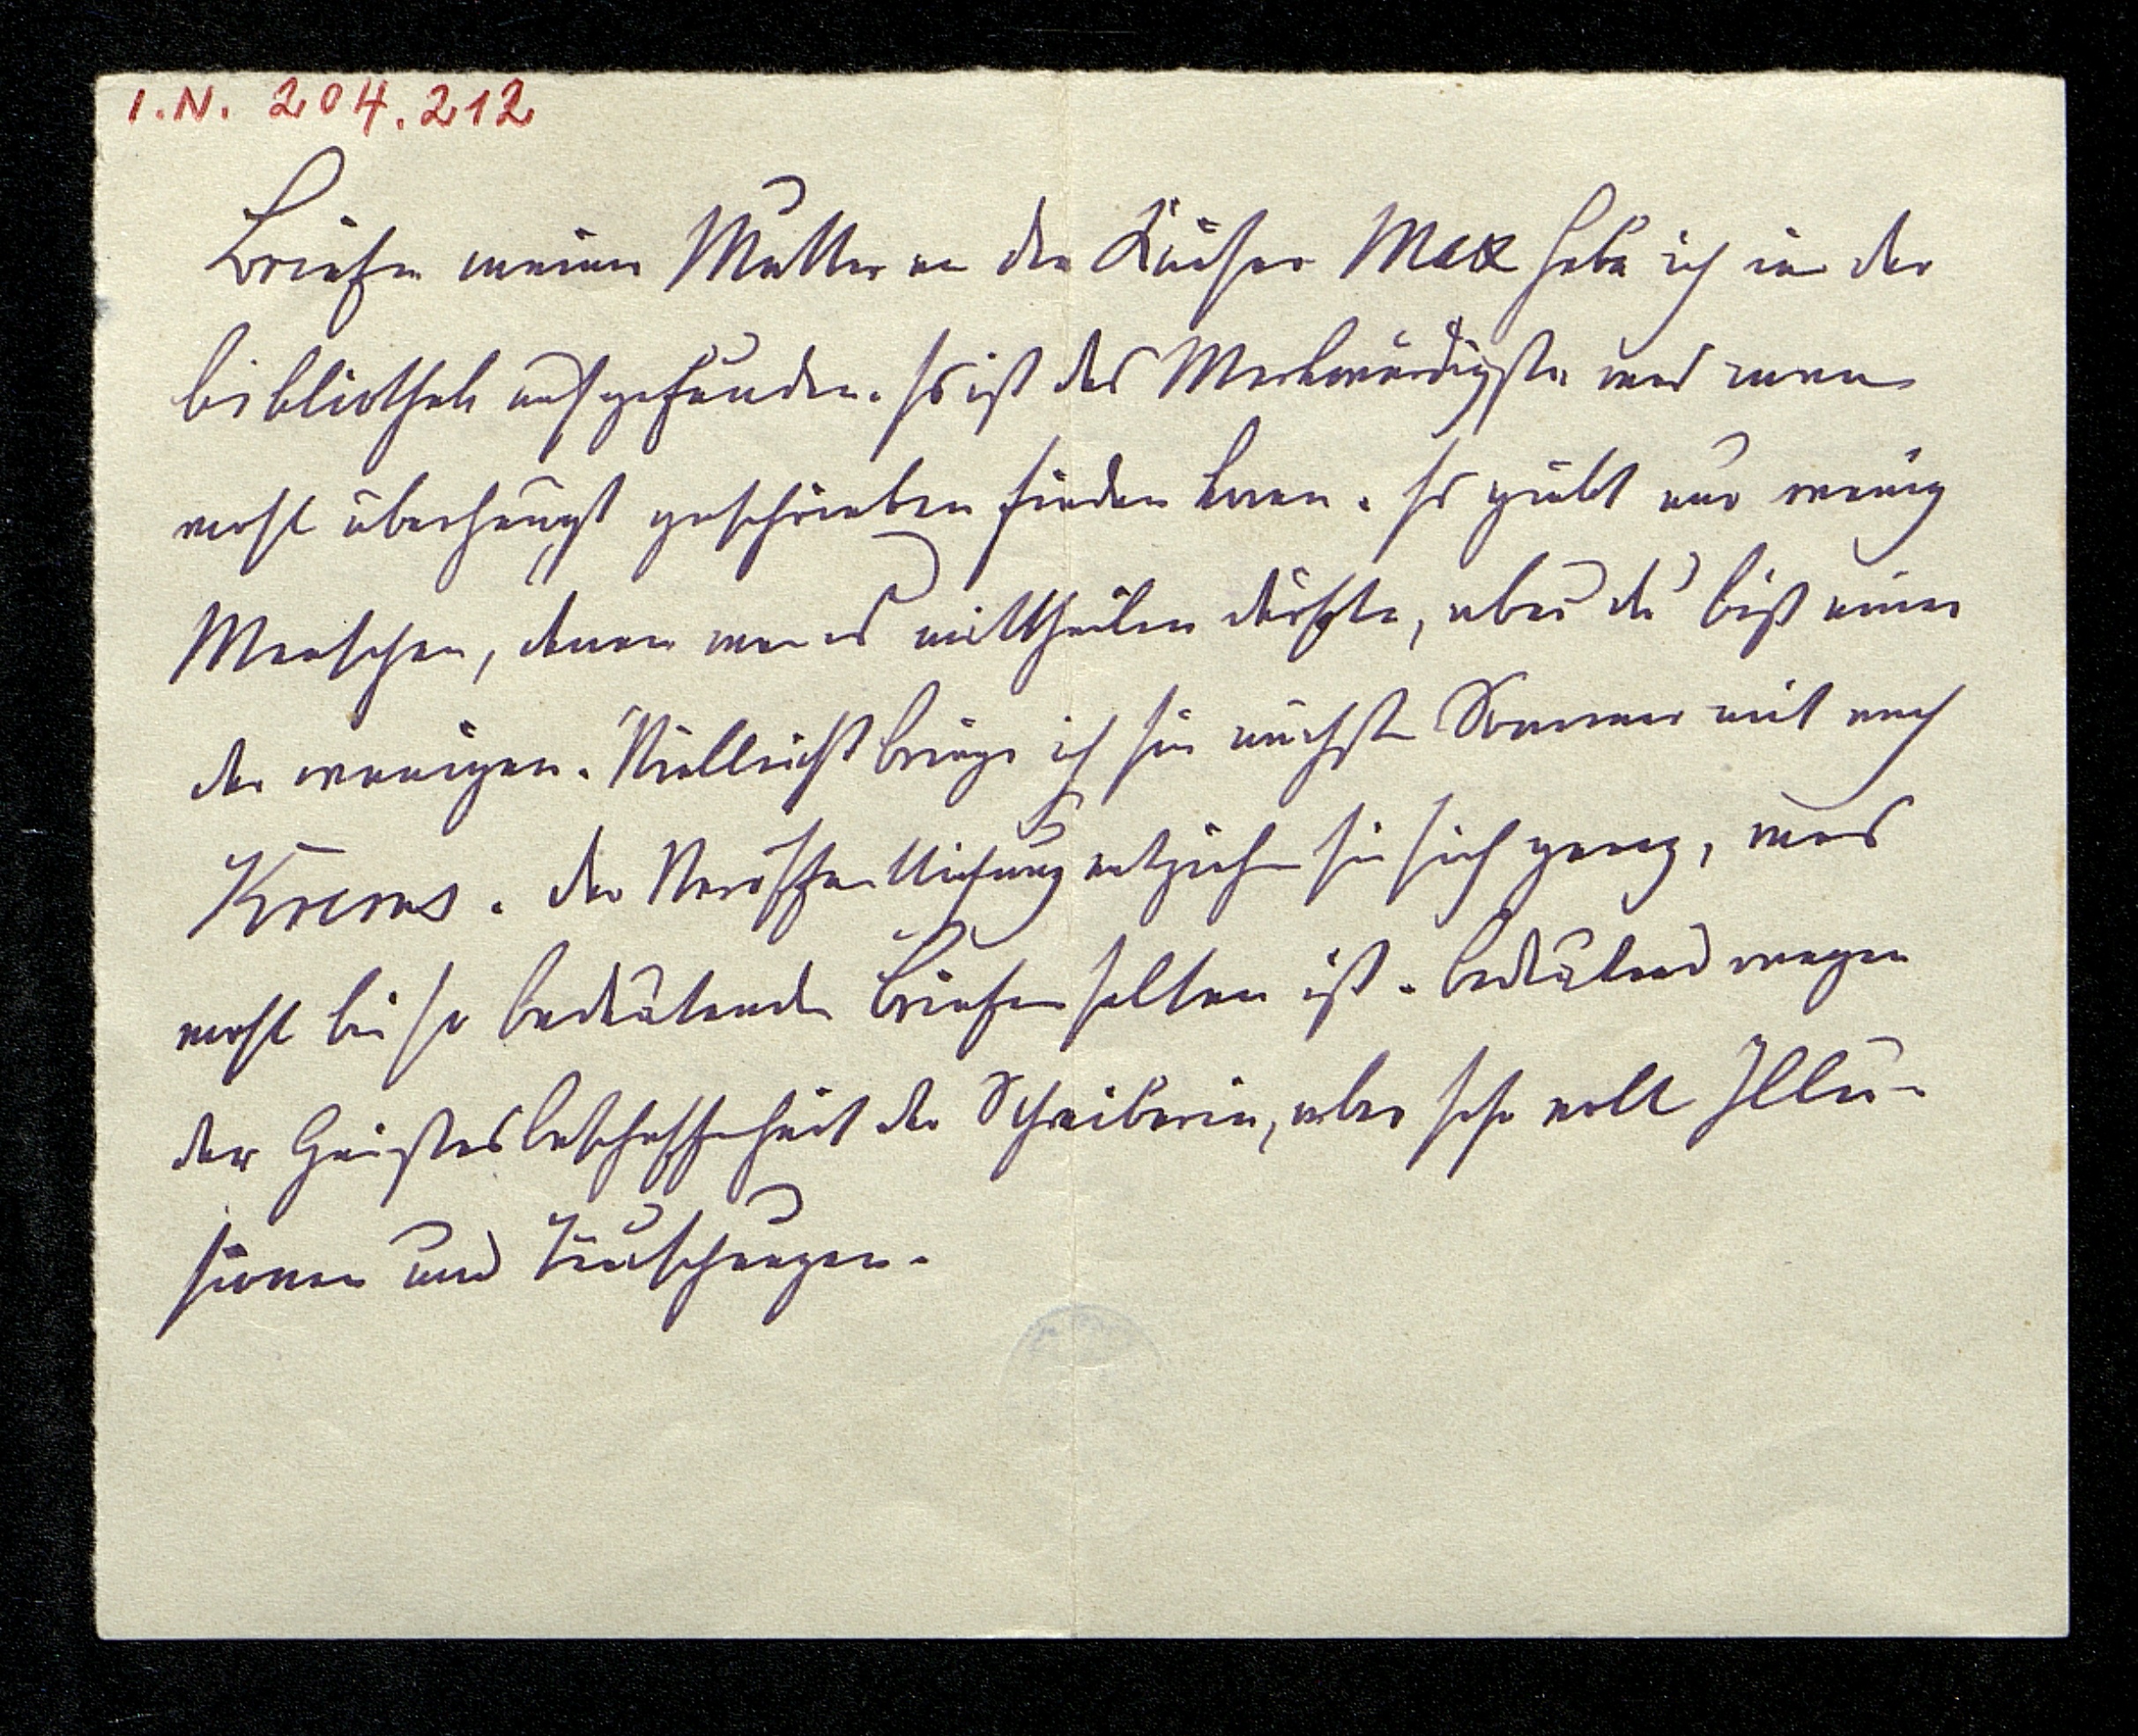 I.N. 204.212
Briefe meiner Mutter an den Kaiser Max habe ich in der
bibliothek aufgefunden. Es ist das Merkwürdigste was man
wohl überhaupt geschrieben finden kann. Es giebt nur wenig
Menschen, denen man es mittheilen dürfte, aber du bist einer
der wenigen. Vielleicht bringe ich sie nächsten Sommer mit nach
Krems. Der Veröffentlichung entziehen sie sich ganz, was
wohl bei so bedeutenden Briefen selten ist. bedeutend wegen
der Geistesbeschaffenheit der Schreiberin, aber sehr voll Illu-
sionen und Täuschungen.